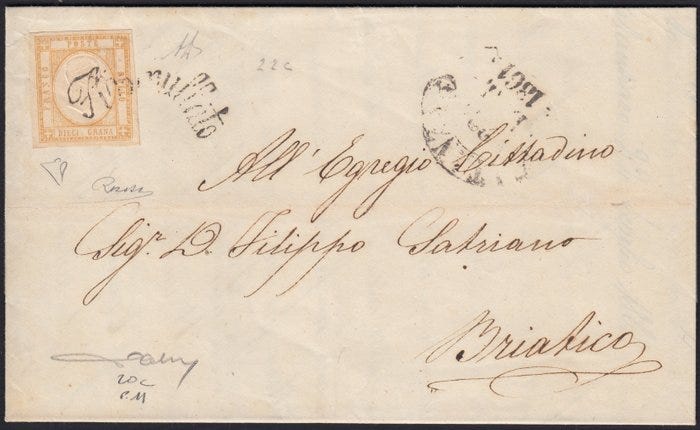 FRANCO
POSTE
BOLLO
DIECI GRANA
Annullato
22c
1861
All' Egregio Cittadino
Sigr. D. Filippo Satriano
Briatico
20c
P.11